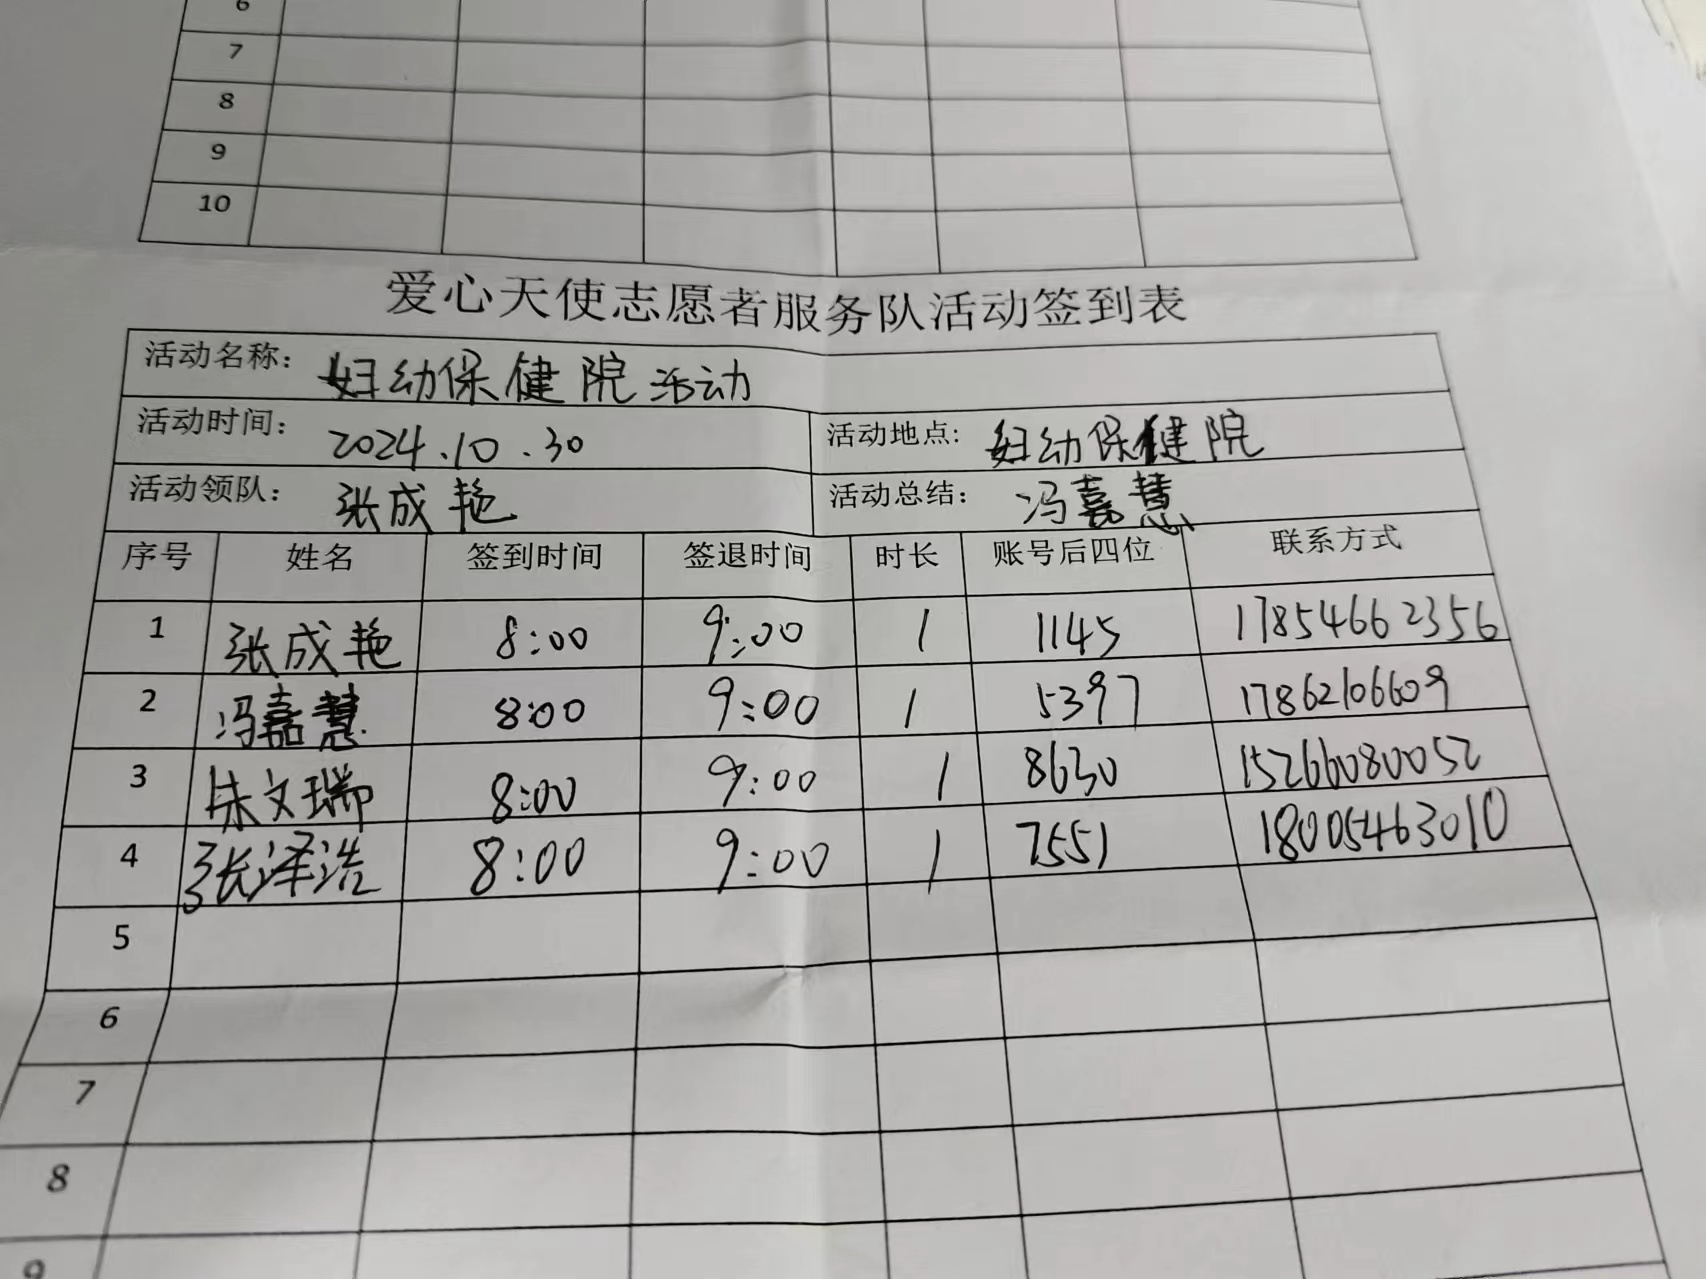 6
7
8
9
10
爱心天使志愿者服务队活动签到表
活动名称： 妇幼保健院活动
活动时间： 2024.10.30 活动地点： 妇幼保健院
活动领队： 张成艳 活动总结： 冯嘉慧
序号 姓名 签到时间 签退时间 时长 账号后四位 联系方式
1 张成艳 8:00 9:00 1 1145 17854662356
2 冯嘉慧 8:00 9:00 1 5397 17862106609
3 朱文瑞 8:00 9:00 1 8630 15266080052
4 张泽浩 8:00 9:00 1 7551 18005463010
5
6
7
8
9